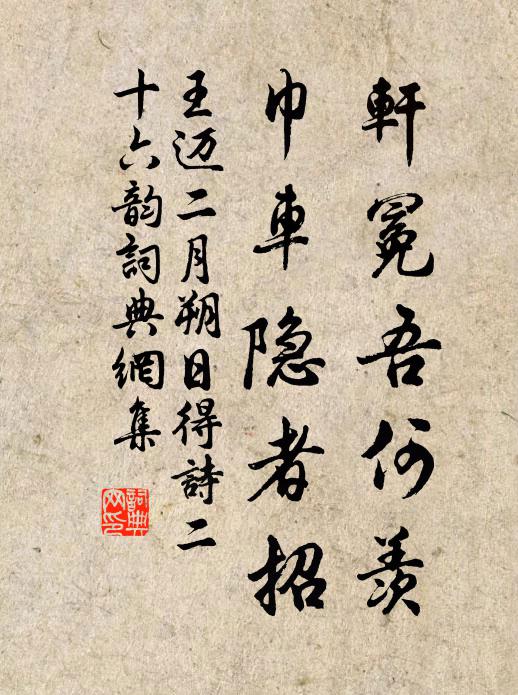 軒冕吾何羨
巾車隐者招
王迈二月朔日得詩二
十六韵詞典網集
詞典网印